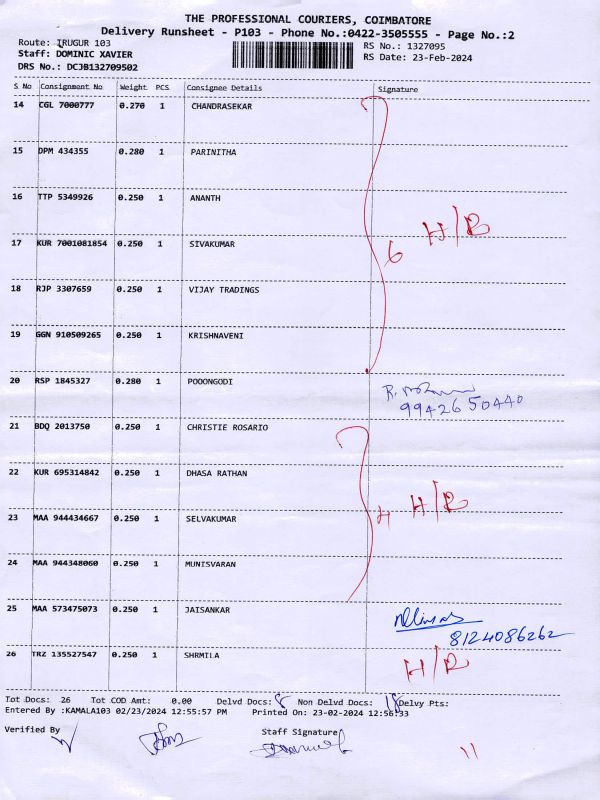 THE PROFESSIONAL COURIERS, COIMBATORE
Delivery Runsheet - P103 - Phone No.:0422-3505555 - Page No.:2
Route: IRUGUR 103
Staff: DOMINIC XAVIER
DRS No.: DCJB132709502
RS No.: 1327095
RS Date: 23-Feb-2024
S No Consignment No Weight PCS Consignee Details Signature
14 CGL 7000777 0.270 1 CHANDRASEKAR
15 DPM 434355 0.280 1 PARINITHA
16 TTP 5349926 0.250 1 ANANTH
H/R
17 KUR 7001081854 0.250 1 SIVAKUMAR
6
18 RJP 3307659 0.250 1 VIJAY TRADINGS
19 GGN 910509265 0.250 1 KRISHNAVENI
20 RSP 1845327 0.280 1 POOONGODI
99426 50440
21 BDQ 2013750 0.250 1 CHRISTIE ROSARIO
22 KUR 695314842 0.250 1 DHASA RATHAN
23 MAA 944434667 0.250 1 SELVAKUMAR
4 H/R
24 MAA 944348060 0.250 1 MUNISVARAN
25 MAA 573475073 0.250 1 JAISANKAR
8124086262
26 TRZ 135527547 0.250 1 SHRMILA
H/R
Tot Docs: 26 Tot COD Amt: 0.00 Delvd Docs: 8 Non Delvd Docs: 18 Delvy Pts:
Entered By :KAMALA103 02/23/2024 12:55:57 PM Printed On: 23-02-2024 12:56:33
Verified By
Staff Signature
11